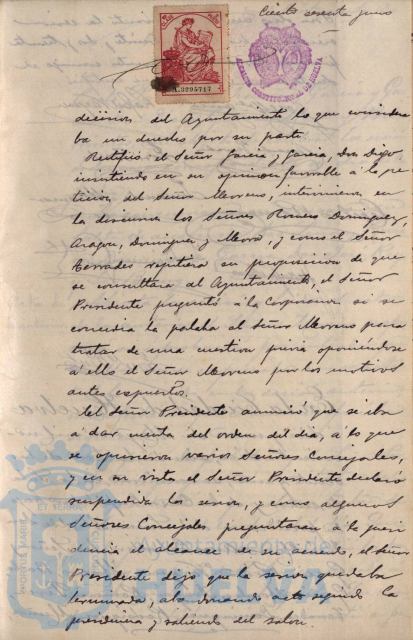 Ciento sesenta y uno
A.3295717
AYUNTAMIENTO CONSTITUCIONAL DE HUELVA
decision del Ayuntamiento lo que considera
ba un derecho por su parte.
Rectificó el Señor Garcia y Garcia, Don Diego,
insistiendo en su opinion favorable á la pe
ticion del Señor Moreno, intervinieron en
la discusion los Señores Romero Dominguez,
Aragon, Dominguez y Mora, y como el Señor
Terrades repitiera su proposicion de que
se consultara al Ayuntamiento, el Señor
Presidente preguntó á la Corporacion si se
concedia la palabra al Señor Moreno para
tratar de una cuestion previa oponiéndose
á ello el Señor Moreno por los motivos
antes expuestos.
El Señor Presidente anunció que se iba
á dar cuenta del orden del dia, á lo que
se opusieron varios Señores Concejales,
y en su vista el Señor Presidente declaró
suspendida la sesion, y como algunos
Señores Concejales preguntaran á la presi
dencia el alcance de su acuerdo, el Señor
Presidente dijo que la sesion quedaba
terminada, abandonando acto seguido la
presidencia y saliendo del salon.
PORTUS MARIS ET TERRAE
HUELVA